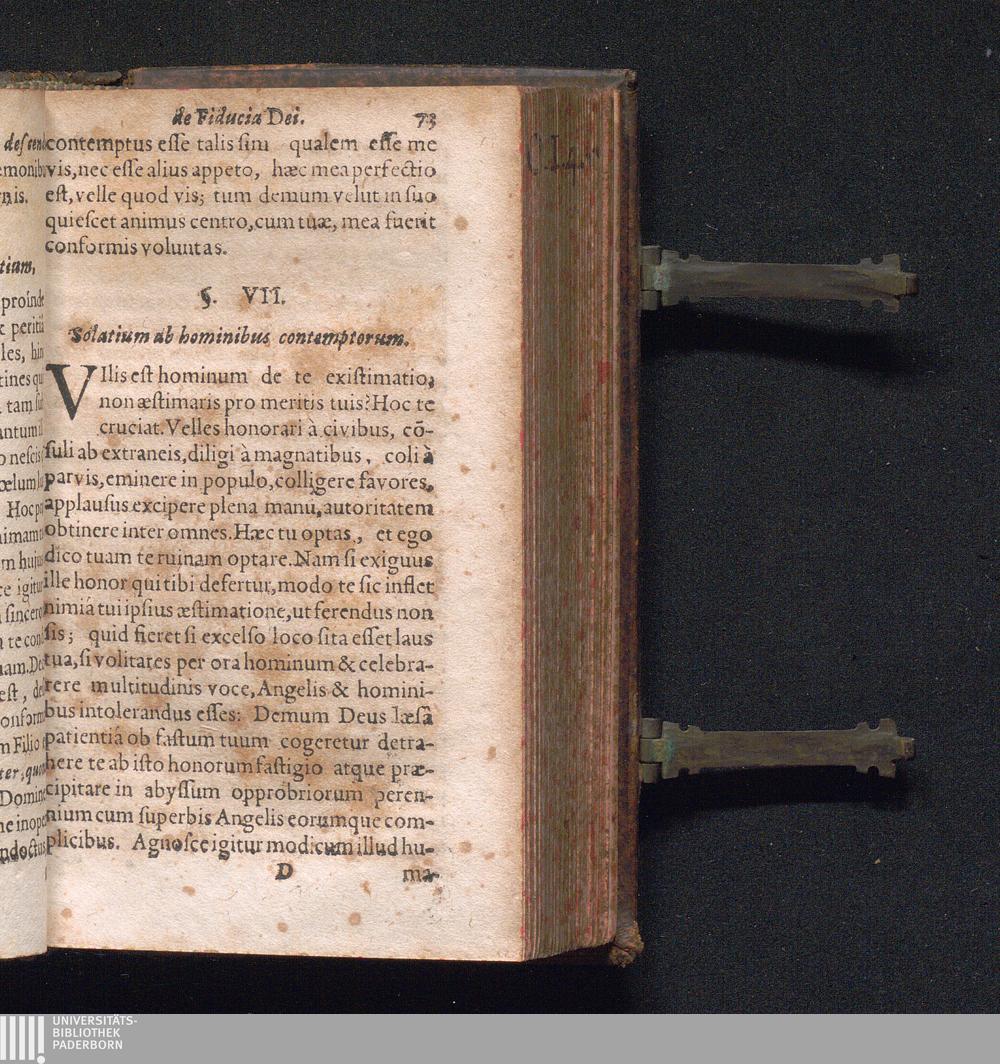 de Fiducia Dei. 73
contemptus eſſe talis ſim qualem eſſe me
vis, nec eſſe alius appeto, hæc mea perfectio
eſt, velle quod vis; tum demum velut in ſuo
quieſcet animus centro, cum tuæ, mea fuerit
conformis voluntas.
§. VII.
Solatium ab hominibus contemptorum.
VIlis eſt hominum de te exiſtimatio,
non æſtimaris pro meritis tuis? Hoc te
cruciat. Velles honorari à civibus, cō-
ſuli ab extraneis, diligi à magnatibus, coli à
parvis, eminere in populo, colligere favores,
applauſus excipere plena manu, autoritatem
obtinere inter omnes. Hæc tu optas, et ego
dico tuam te ruinam optare. Nam ſi exiguus
ille honor qui tibi defertur, modo te ſic inflet
nimiá tui ipſius æſtimatione, ut ferendus non
ſis; quid fieret ſi excelſo loco ſita eſſet laus
tua, ſi volitares per ora hominum & celebra-
rere multitudinis voce, Angelis & homini-
bus intolerandus eſſes: Demum Deus læſâ
patientiâ ob faſtum tuum cogeretur detra-
here te ab iſto honorum faſtigio atque præ-
cipitare in abyſſum opprobriorum peren-
nium cum ſuperbis Angelis eorumque com-
plicibus. Agnoſce igitur modicum illud hu-
D ma-
UNIVERSITÄTS-
BIBLIOTHEK
PADERBORN